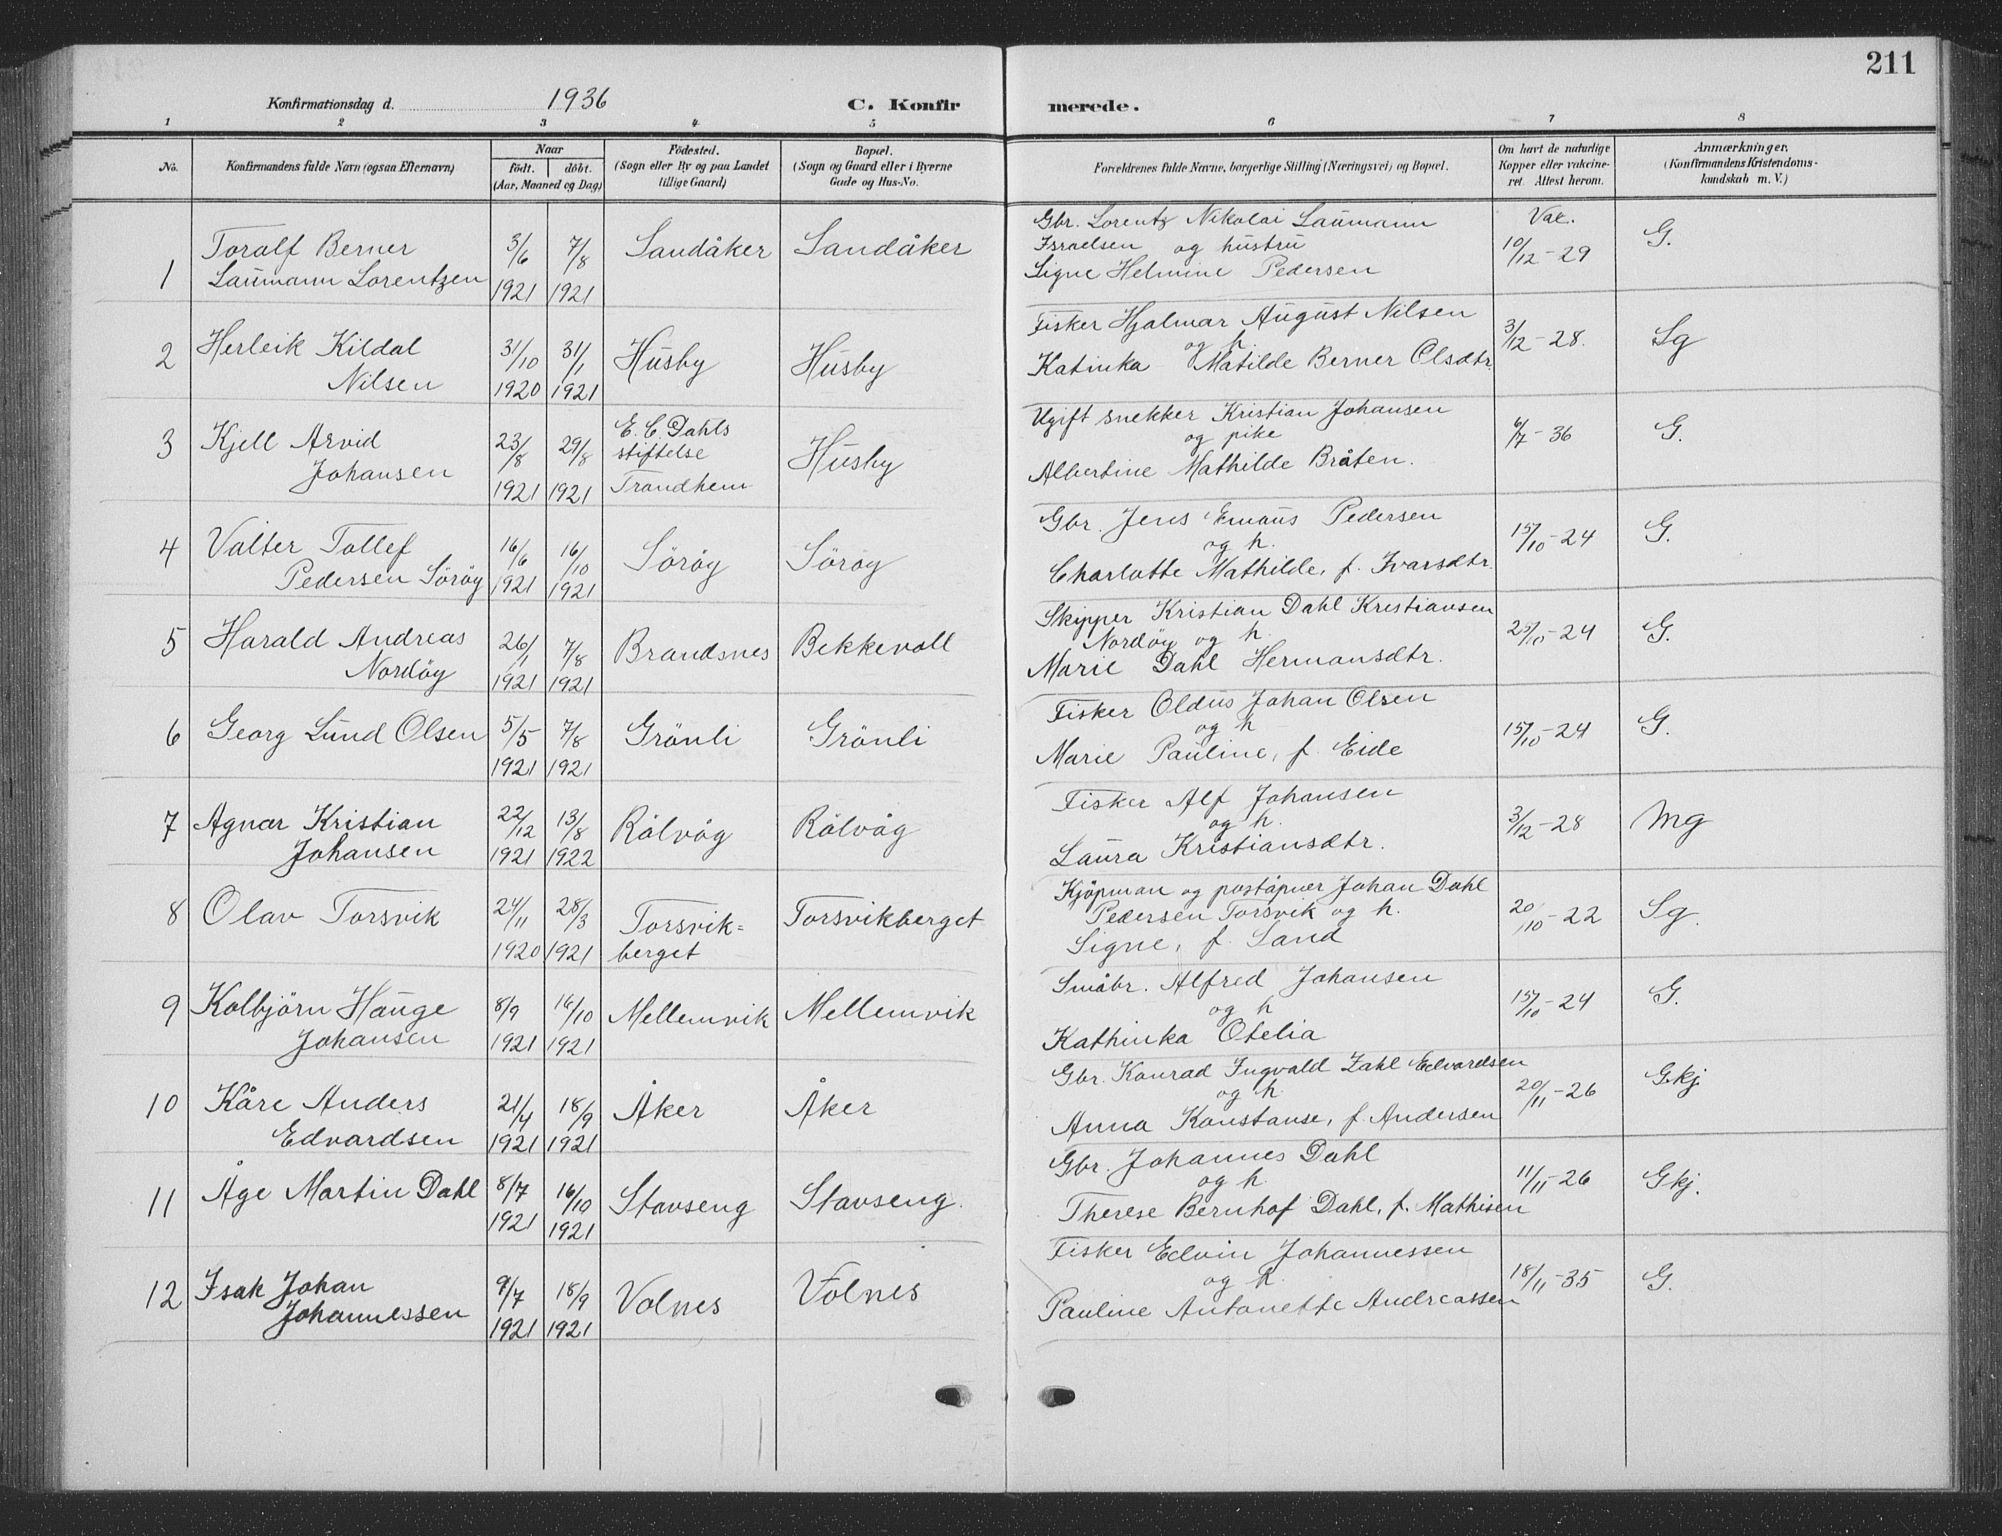 211
Konfirmationsdag d. 1936 C. Konfirmerede.
1 2 3 4 5 6 7 8
No. Konfirmandens fulde Navn (ogsaa Efternavn) Naar født. døbt. (Aar, Maaned og Dag) Fødested. (Sogn eller By og paa Landet tillige Gaard) Bopæl. (Sogn og Gaard eller i Byerne Gade og Hus-No. Forældrenes fulde Navne, borgerlige Stilling (Næringsvei) og Bopæl. Om havt de naturlige Kopper eller vakcineret. Attest herom. Anmærkninger. (Konfirmandens Kristendomskundskab m. V.)
1 Toralf Berner
Laumann Lorentzen
3/6 1921
7/8 1921
Sandåker
Sandåker
Gbr. Lorentz Nikolai Laumann
Israelsen og hustru
Signe Helmine Pedersen
Vac.
10/12-29
G.
2 Herleik Kildal
Nilsen
31/10 1920
31/1 1921
Husby
Husby
Fisker Hjalmar August Nilsen
og h.
Katinka Matilde Berner Olsdtr.
3/12-28.
Sg
3 Kjell Arvid
Johansen
23/8 1921
29/8 1921
E. C. Dahls
stiftelse
Trondhem
Husby
Ugift snekker Kristian Johansen
og pike
Albertine Mathilde Bråten.
6/7-36
G.
4 Valter Tollef
Pedersen Sörøy
16/6 1921
16/10 1921
Sörøy
Sörøy
Gbr. Jens Emaus Pedersen
og h.
Charlotte Mathilde, f. Ivarsdtr
15/10-24
G.
5 Harald Andreas
Nordöy
26/1 1921
7/8 1921
Brandsnes
Bekkevoll
Skipper Kristian Dahl Kristiansen
Nordöy og h.
Marie Dahl Hermansdtr.
25/10-24
G.
6 Georg Lund Olsen
5/5 1921
7/8 1921
Grönli
Grönli
Fisker Oldus Johan Olsen
og h
Marie Pauline, f. Eide
15/10-24
G.
7 Agnar Kristian
Johansen
22/12 1921
13/8 1922
Rölvåg
Rölvåg
Fisker Alf Johansen
og h.
Laura Kristiansdtr.
3/12-28
Mg
8 Olav Torsvik
24/11 1920
28/3 1921
Torsvik=
berget
Torsvikberget
Kjöpman og poståpner Johan Dahl
Pedersen Torsvik og h.
Signe, f. Sand
20/10-22
Sg.
9 Kolbjörn Hauge
Johansen
8/9 1921
16/10 1921
Mellemvik
Mellemvik
Småbr. Alfred Johansen
og h
Kathinka Otelia
15/10-24
G.
10 Kåre Anders
Edvardsen
21/4 1921
18/9 1921
Åker
Åker
Gbr. Konrad Ingvald Zahl Edvardsen
og h
Anna Konstanse, f. Andersen
20/11-26
Gkj.
11 Åge Martin Dahl
8/7 1921
16/10 1921
Stavseng
Stavseng.
Gbr. Johannes Dahl
og h.
Therese Bernhof Dahl, f. Mathisen
11/11-26
Gkj.
12 Isak Johan
Johannessen
9/7 1921
18/9 1921
Volnes
Volnes
Fisker Edvin Johannessen
og h.
Pauline Antonette Andreassen
18/11-35
G.